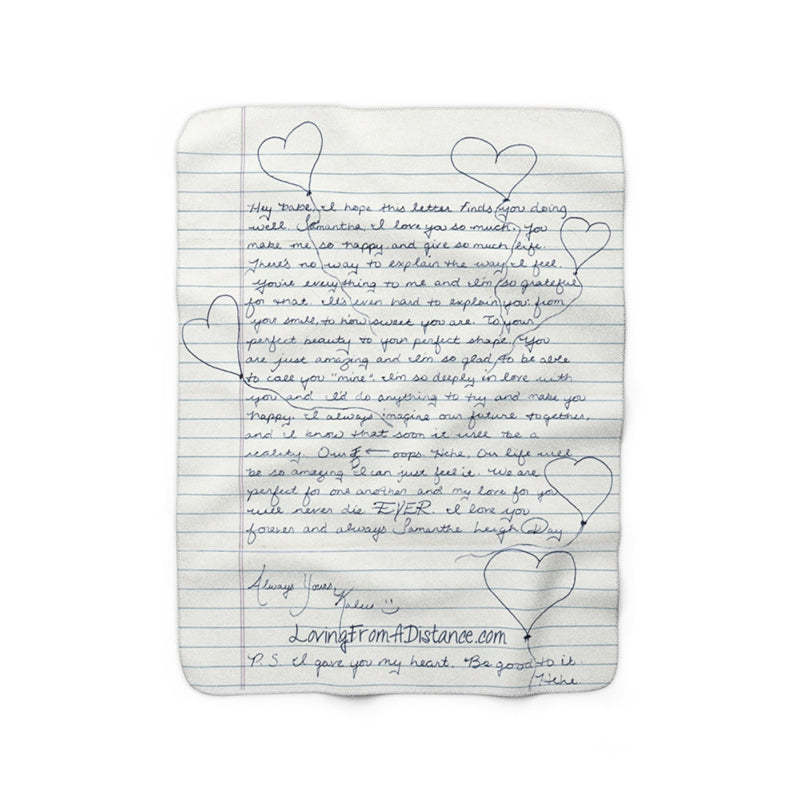 Hey babe, I hope this letter finds you doing
well. Samantha, I love you so much. You
make me so happy and give so much life.
There's no way to explain the way I feel.
You're everything to me and I'm so grateful
for that. It's even hard to explain you: from
your smile, to how sweet you are. To your
perfect beauty to your perfect shape. You
are just amazing and I'm so glad to be able
to call you "mine". I'm so deeply in love with
you and I'd do anything to try and make you
happy. I always imagine our future together,
and I know that soon it will be a
reality. Our ← oops. Hehe. Our life will
be so amazing I can just feel it. We are
perfect for one another and my love for you
will never die EVER. I love you
forever and always Samantha Leigh Day
Always Yours,
Kaleb :)
LovingFromADistance.com
P.S. I gave you my heart. Be good to it
Hehe